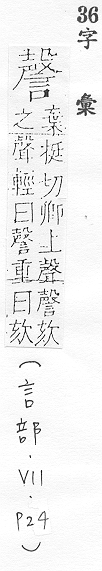 36字彙
謦
棄挺切卿上聲謦欬
之聲輕曰謦重曰欬
(言部.VII.P24)